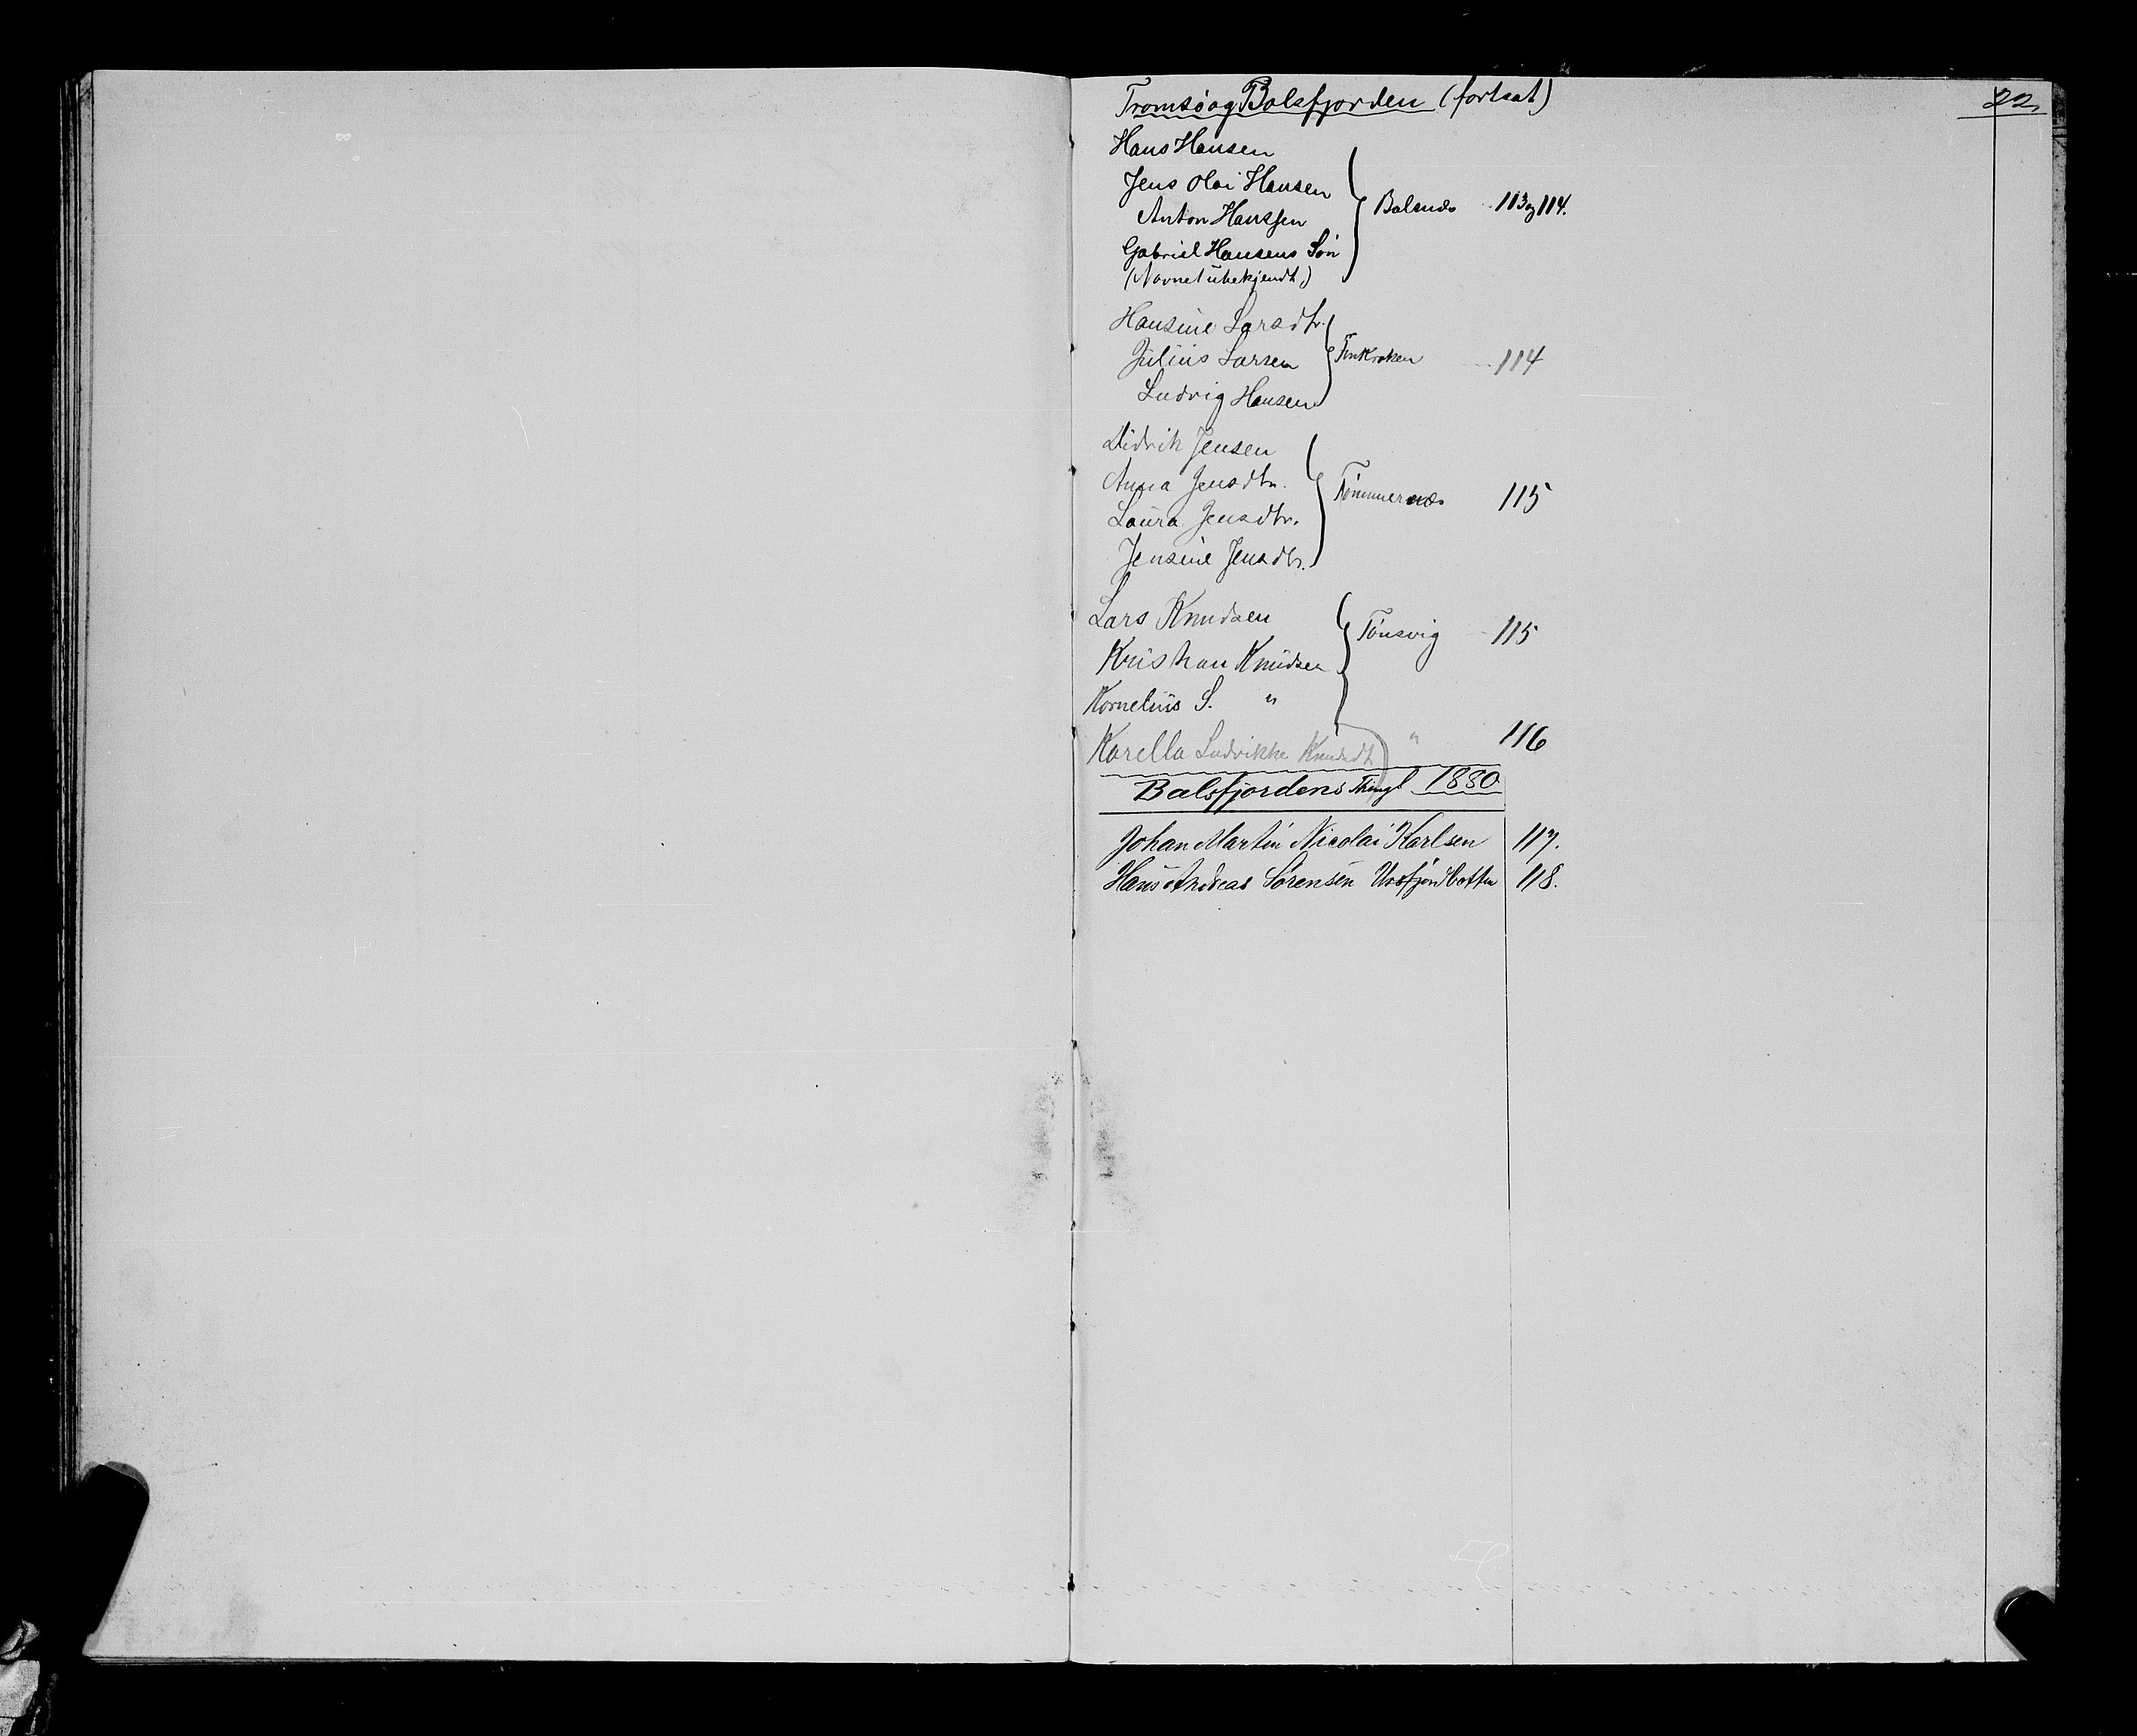 Tromsö og Balsfjorden (fortsat)
22,
Hans Hansen
Jens Olai Hansen
Anton Hanssen
Balsnæs 113 og 114.
Gabriel Hansens Sön
(Navnet ubekjendt)
Hansine Larsdtr.
Julius Larsen
Finkroken 114
Ludvig Hansen
Didrik Jensen
Anna Jensdtr.
Tömmernæs 115
Laura Jensdtr.
Jensine Jensdtr.
Lars Knudsen
Tönsvig 115
Kristian Knudsen
Kornelius S. "
Karella Ludvikke Knudsdt " 116
Balsfjordens Thingl 1880
Johan Martin Nicolai Karlsen 117.
Hans Andreas Sörensen Ursfjordbotten 118.